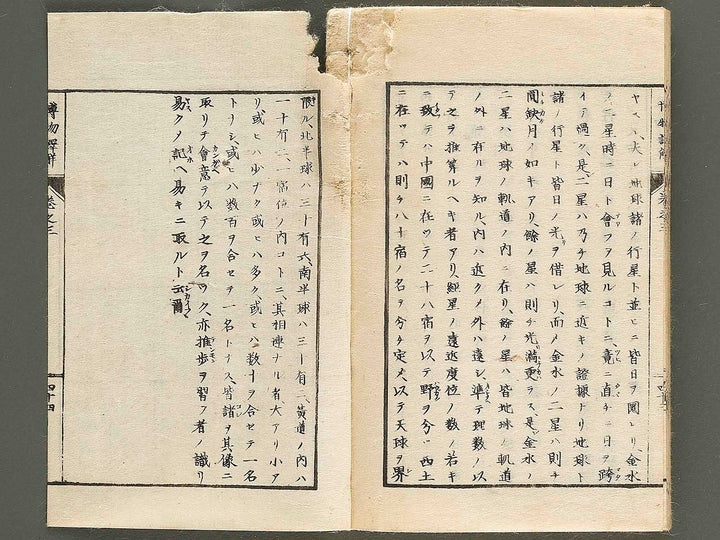 ヤスル、夫レ地球諸ノ行星ト並ビニ皆日ヲ圜レリ、金水
ノ二星時ニ日ト會フヲ見ルコトニ、竟ニ直チニ日ヲ跨
イテ過ク、是二星ハ乃チ地球ニ近キノ證據ナリ地球ト
諸ノ行星ト皆日ノ光ヲ借レリ、而メ金水ノ二星ハ則チ
間缺月ノ如キアリ、餘ノ星ハ則チ光滿更ラス、是金水ノ
二星ハ地球ノ軌道ノ内ニ在リ、餘ノ星ハ皆地球ノ軌道
ノ外ニ在ルヲ知ル、内ハ近クメ外ハ遠シ、準テ理数ノ以
テ之ヲ推算ルヘキ者アリ、經星ノ遠近度位ノ数ノ若キ
ニ致テハ中國ニ在ツテ二十八宿ヲ以テ野ヲ分ツ西土
ニ在ツテハ則チ八十宿ノ名ヲ分チ定メ以テ天球ヲ界
限ル、北半球ハ三十有六、南半球ハ三十有二、黄道ノ内ハ
一十有二、一宿位ノ内コトニ、其相連ナル者大アリ小ア
リ、或ヒハ少ナク或ヒハ多ク、或ヒハ数十ヲ合セテ一名
トリシ、或ヒハ数百ヲ合セテ一名トナス、皆諸ヲ其像ニ
取リテ會意テ以テ之ヲ名ツク、亦推歩ヲ習フ者ノ識リ
易クメ記ヘ易キニ取ルト云爾
博物
解
卷之三
四十四